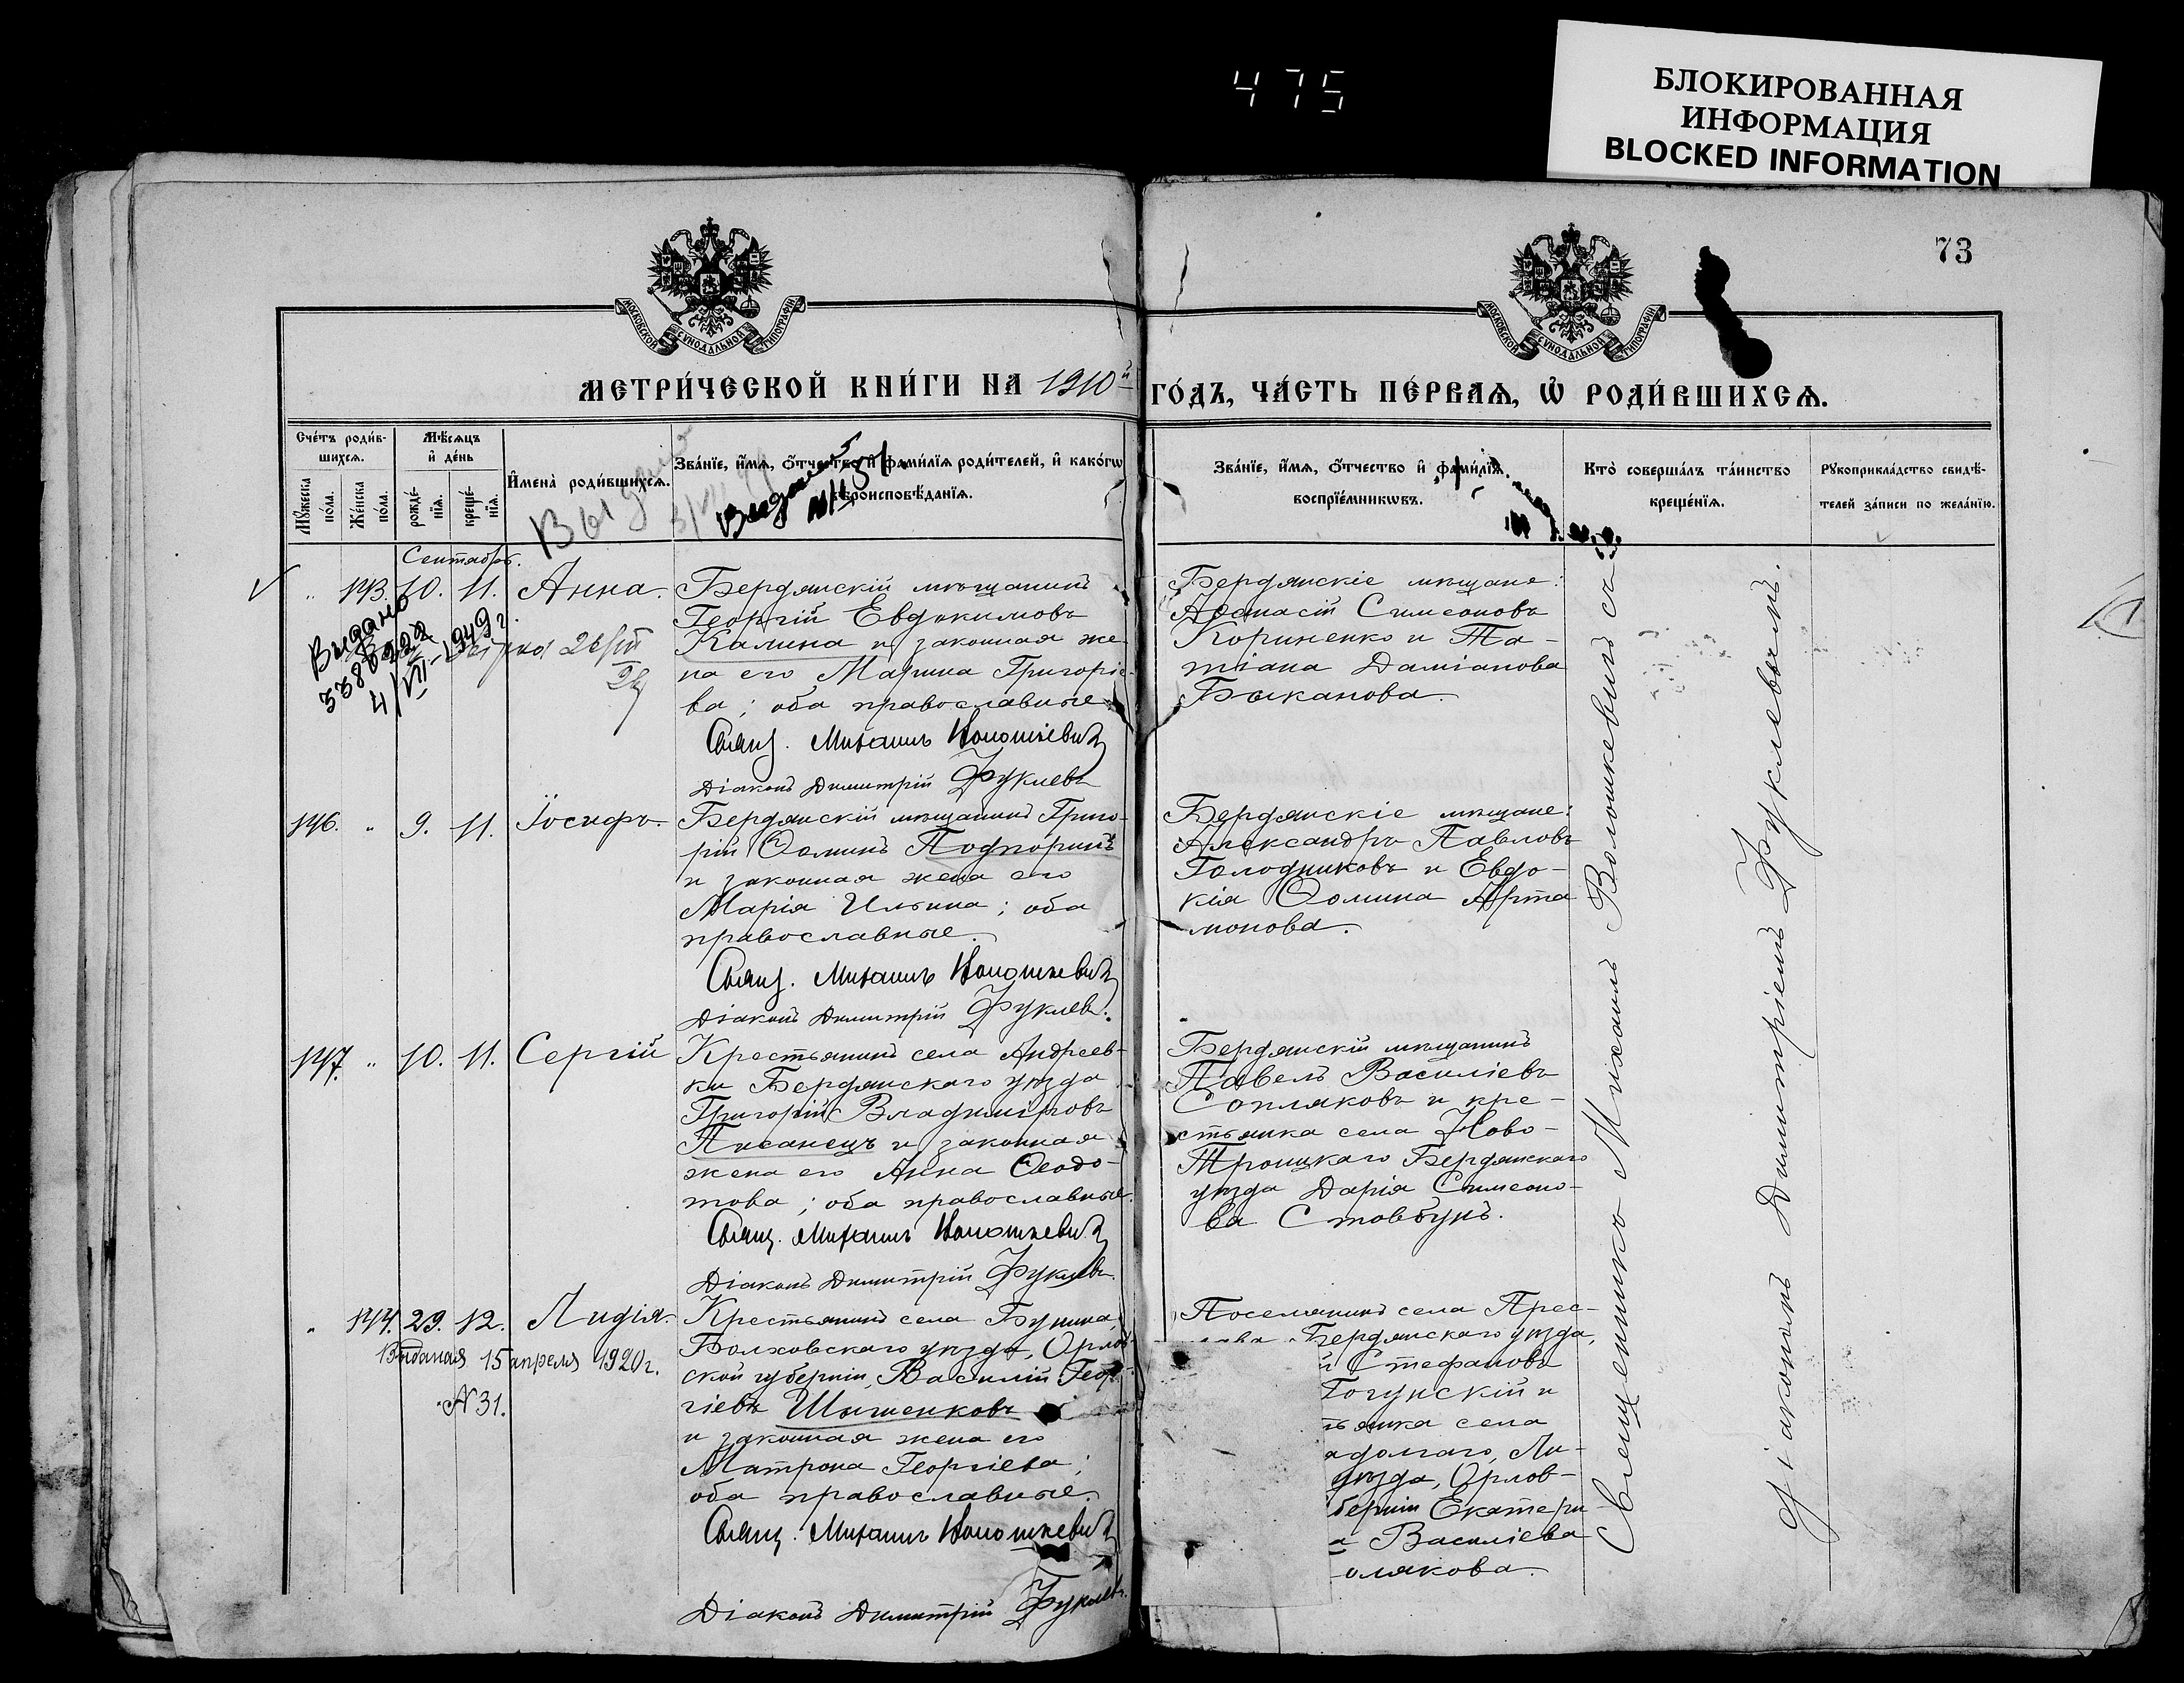 475
БЛОКИРОВАННАЯ
ИНФОРМАЦИЯ
BLOCKED INFORMATION
73
МОСКОВСКОЙ СѴНОДАЛЬНОЙ ТИПОГРАФІИ
МОСКОВСКОЙ СѴНОДАЛЬНОЙ ТИПОГРАФІИ
МЕТРИ́ЧЕСКОЙ КНИ́ГИ НА 1910й ГО́ДЪ, ЧА́СТЬ ПЕ́РВАѦ, Ѡ҆ РОДИ́ВШИХСѦ.
Сче́тъ роди́в-
шихсѧ.
Мѣ́сѧцъ
и҆ де́нь
Мꙋ́жеска
по́ла.
Же́нска
по́ла.
рожде́-
нїѧ.
креще́-
нїѧ.
И҆мена̀ роди́вшихсѧ.
Зва́нїе, и҆́мѧ, ѻ҆́тчество и҆ фами́лїѧ роди́телей, и҆ како́гѡ
вѣроисповѣ́данїѧ.
Зва́нїе, и҆́мѧ, ѻ҆́тчество и҆ фами́лїѧ
воспрїе́мникѡвъ.
Кто̀ соверша́лъ та́инство
креще́нїѧ.
Рꙋкоприкла́дство свидѣ́-
телей за́писи по жела́нїю.
Выдана
Сентябрь.
" 143. 10. 11. Анна.
Бердянскій мѣщанинъ
Георгій Евдокимовъ
Калина и законная же-
на его Марина Григорiе-
ва; оба православные
Свящ. Михаилъ Волошкевичъ
Діаконъ Димитрій Фуклевъ
Бердянскіе мѣщане:
Аѳанасій Симеоновъ
Кориненко и Та-
тіана Даміанова
Быканова.
Выдано
4/VII-1949г.
146. " 9. 11. Іосифъ.
Бердянскій мѣщанинъ Григо-
рій Ѳоминъ Подпоринъ
и законная жена его
Марія Ильина; оба
православные.
Свящ. Михаилъ Волошкевичъ
Діаконъ Димитрій Фуклевъ.
Бердянскіе мѣщане:
Александръ Павловъ
Голодниковъ и Евдо-
кія Ѳомина Арта
монова.
147. " 10. 11. Сергій
Крестьянинъ села Андреев-
ки Бердянскаго уѣзда
Григорій Владиміровъ
Писанецъ и законная
жена его Анна Ѳеодо-
това; оба православные.
Свящ. Михаилъ Волошкевичъ
Діаконъ Димитрій Фуклевъ.
Бердянскій мѣщанинъ
Павелъ Василіевъ
Сопляковъ и кре-
стьянка села Ново-
Троицкаго Бердянскаго
уѣзда Дарія Симеоно-
ва Стовбунъ.
" 144. 29. 12. Лидія.
Выданая 15 апреля 1920г.
№31.
Крестьянинъ села Бунина,
Болховскаго уѣзда, Орлов
ской губерніи, Василій Геор-
гіевъ Шышенковъ
и законная жена его
Матрона Георгіева;
оба православные.
Свящ. Михаилъ Волошкевичъ
Діаконъ Димитрій Фуклевъ.
Поселянинъ села Прес-
Бердянскаго уѣзда,
й Стефановъ
Гогунскій и
тьянка села
адолгаго, Ли-
уѣзда, Орлов-
берніи Екатери-
а Василіева
олякова.
Священникъ Михаилъ Волошкевичъ съ
діакономъ Димитріемъ Фуклевымъ.